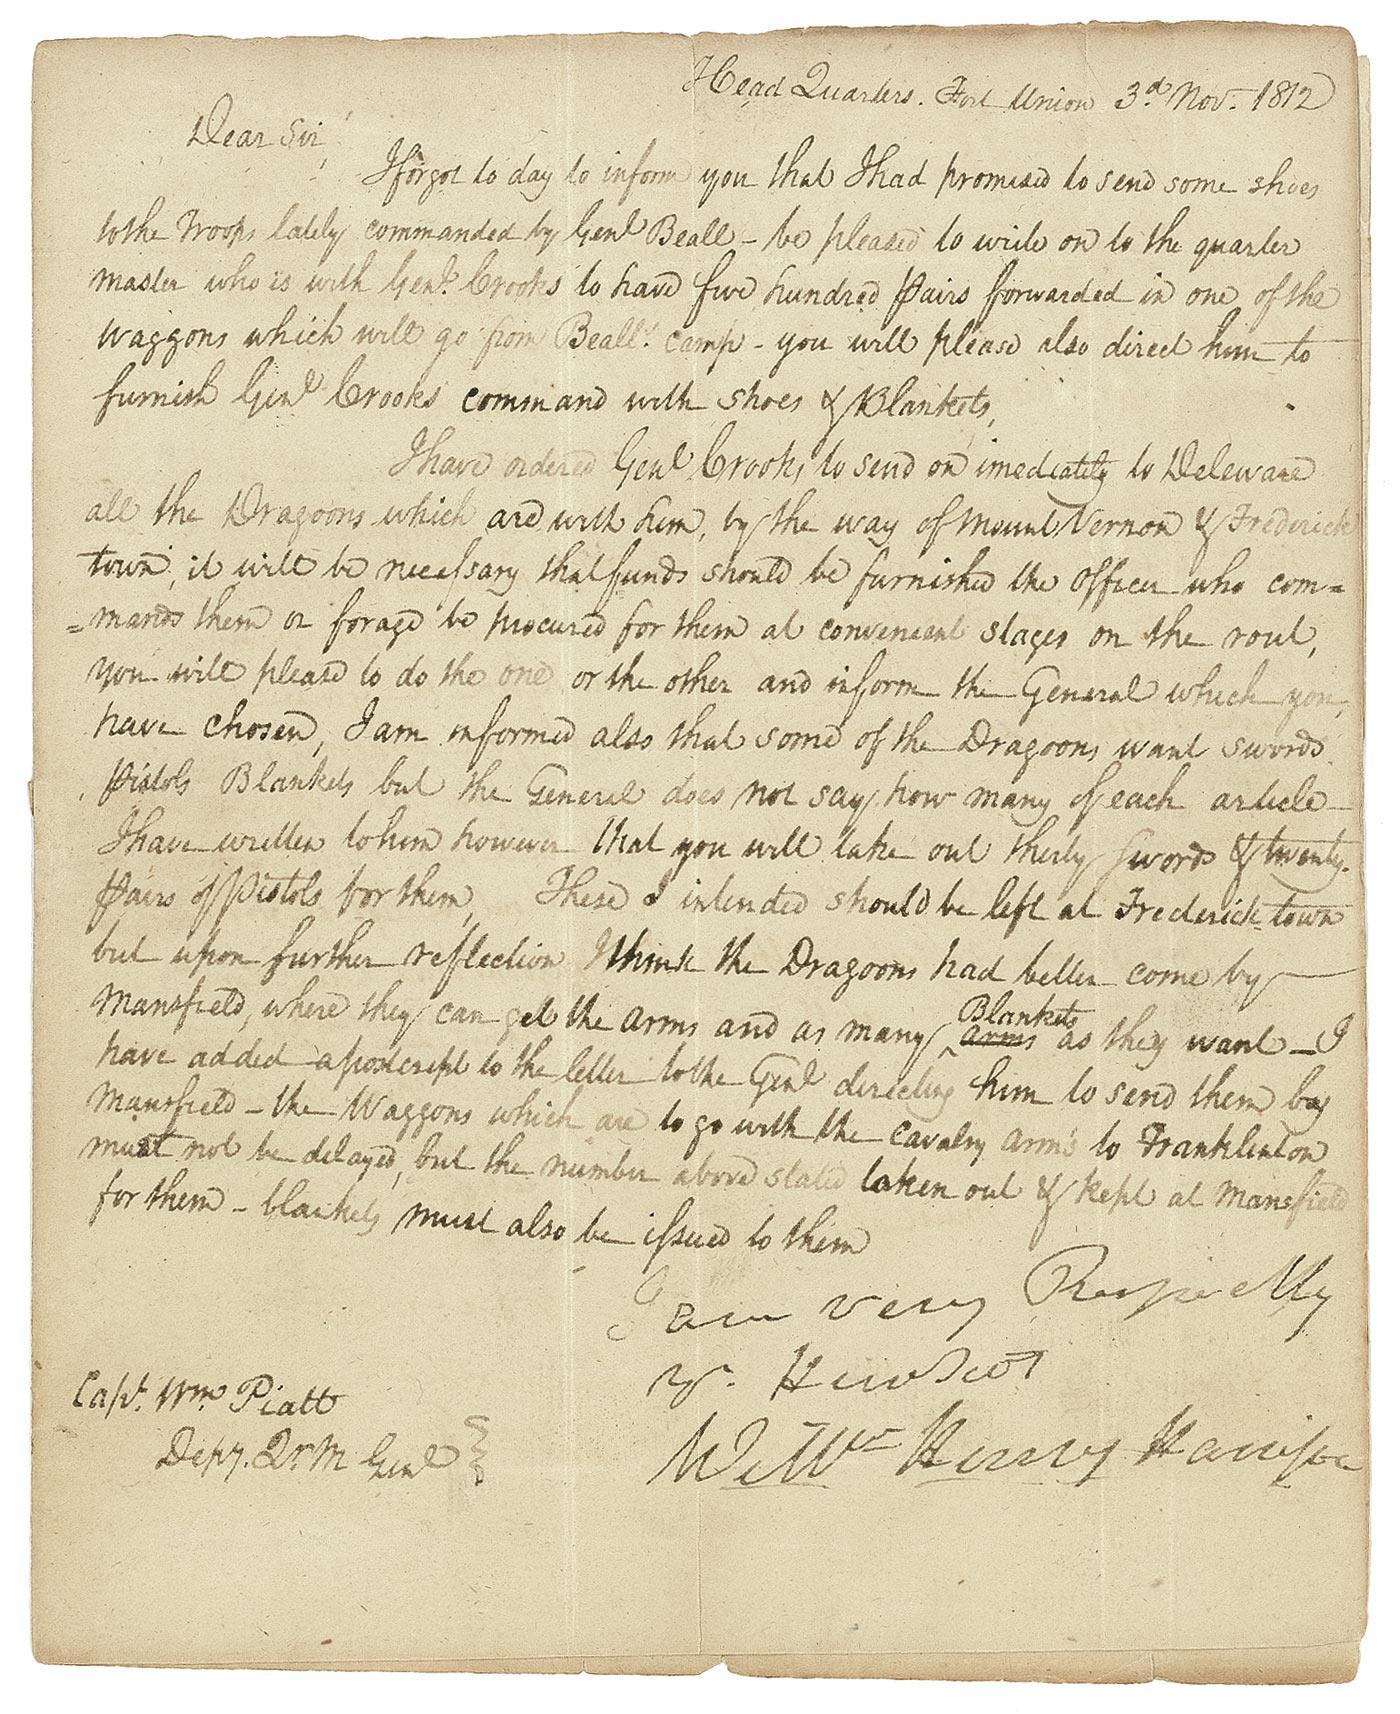 Head Quarters. Fort Union 3d. Nov. 1812
Dear Sir,
I forgot to day to inform you that I had promised to send some shoes
to the Troops lately commanded by Genl Beall - be pleased to write on to the quarter
master who is with Genl. Crooks to have five hundred pairs forwarded in one of the
waggons which will go from Bealls. camp - you will please also direct him to
furnish Genl Crooks command with shoes & Blankets,
I have ordered Genl Crooks to send on imediately to Deleware
all the Dragoons which are with him, by the way of Mount Vernon & Frederick
town, it will be necessary that funds should be furnished the officer who com=
=mands them or forage be procured for them at convenient stages on the rout,
you will please to do the one or the other and inform the General which you
have chosen, I am informed also that some of the Dragoons want swords
Pistols Blankets but the General does not say how many of each article
I have written to him however that you will take out thirty swords & twenty
pairs of Pistols for them, These I intended should be left at Frederick town
but upon further reflection I think the Dragoons had better come by
Mansfield, where they can get the arms and as many Blankets arms as they want - I
have added a postcript to the letter to the Genl directing him to send them by
Mansfield - the Waggons which are to go with the cavalry arms to Franklinton
must not be delayed, but the number above stated taken out & kept at Mansfield
for them - blankets must also be issued to them
I am very Respectly
yr. Hum Sert
Willm Henry Harrison
Capt. Wm. Piatt
Depy. Qr. M Genl